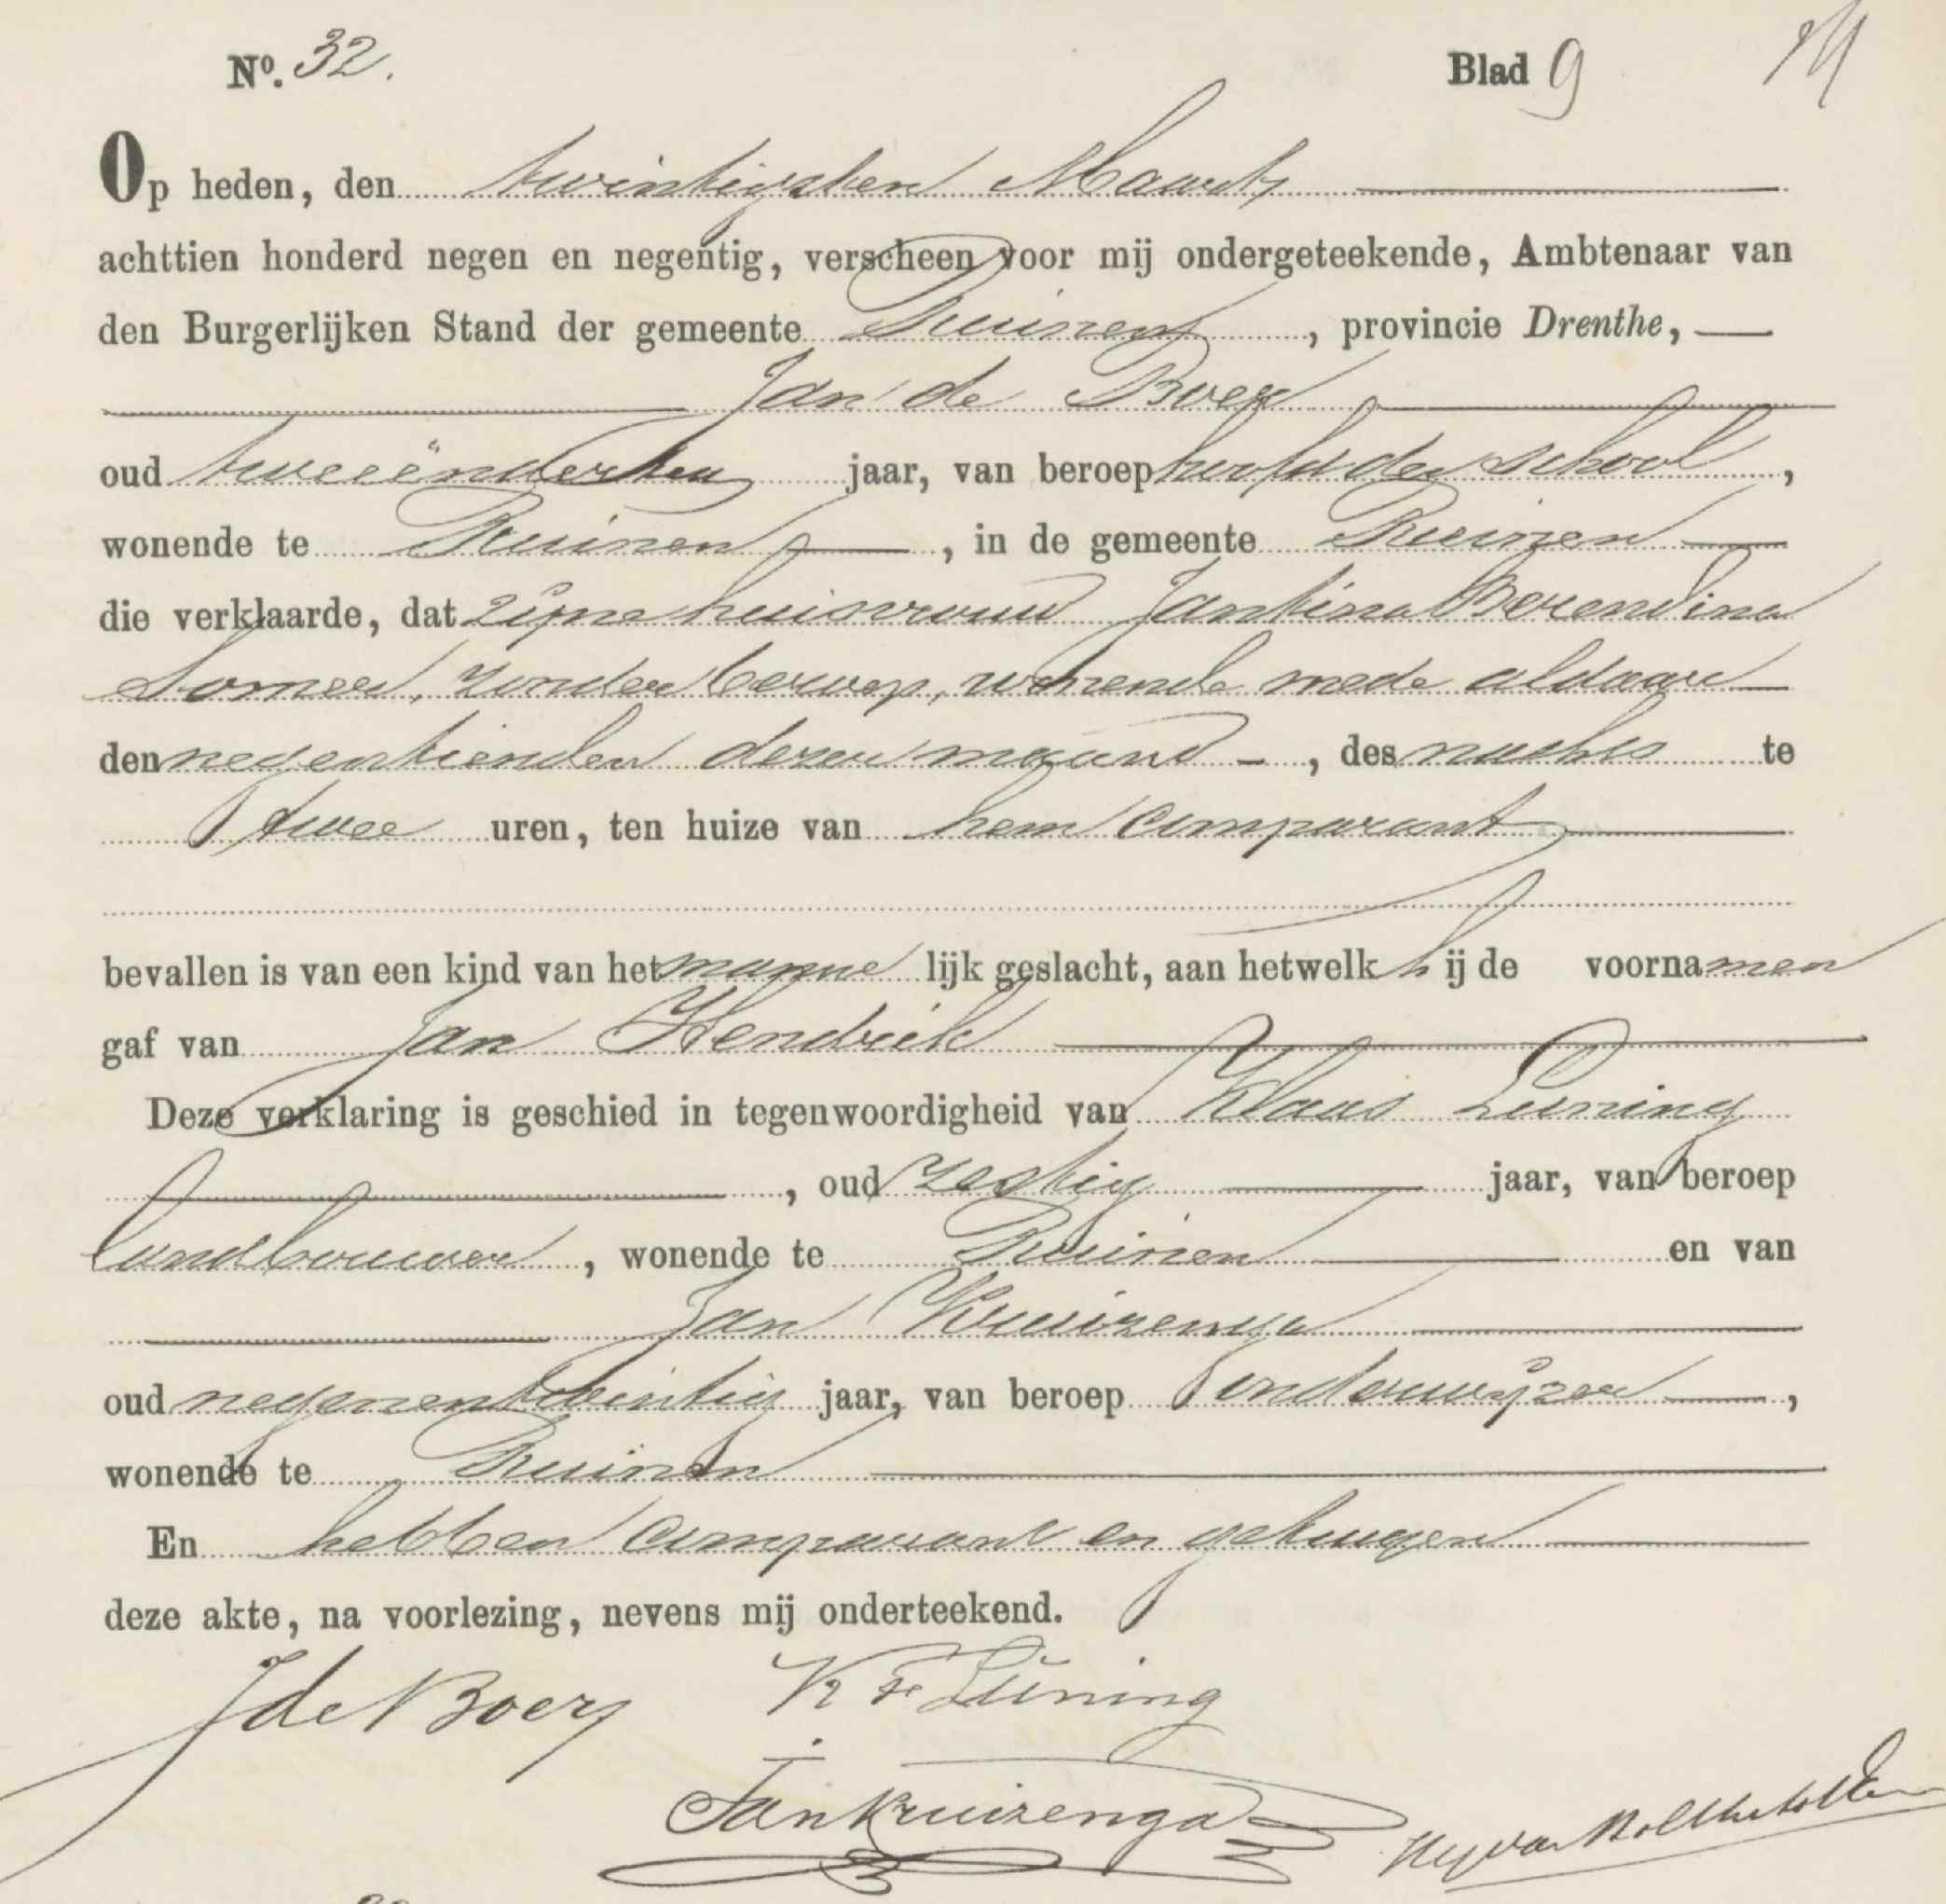 Nº. 32. Blad 9
Op heden, den twintigsten Maart
achttien honderd negen en negentig, verscheen voor mij ondergeteekende, Ambtenaar van
den Burgerlijken Stand der gemeente Ruinen, provincie Drenthe,
Jan de Boer
oud tweeëndertig jaar, van beroep hoofd der school,
wonende te Ruinen, in de gemeente Ruinen
die verklaarde, dat zijne huisvrouw Jantina Berendina
Somer, zonder beroep, wonende mede aldaar
den negentienden dezer maand, des nachts te
twee uren, ten huize van hem comparant
bevallen is van een kind van het manne lijk geslacht, aan hetwelk hij de voornamen
gaf van Jan Hendrik
Deze verklaring is geschied in tegenwoordigheid van Klaas Luning
, oud zestig jaar, van beroep
landbouwer, wonende te Ruinen en van
Jan Kruizenga
oud negenentwintig jaar, van beroep onderwijzer,
wonende te Ruinen
En hebben comparant en getuigen
deze akte, na voorlezing, nevens mij onderteekend.
J de Boer K Luning
Jan Kruizenga